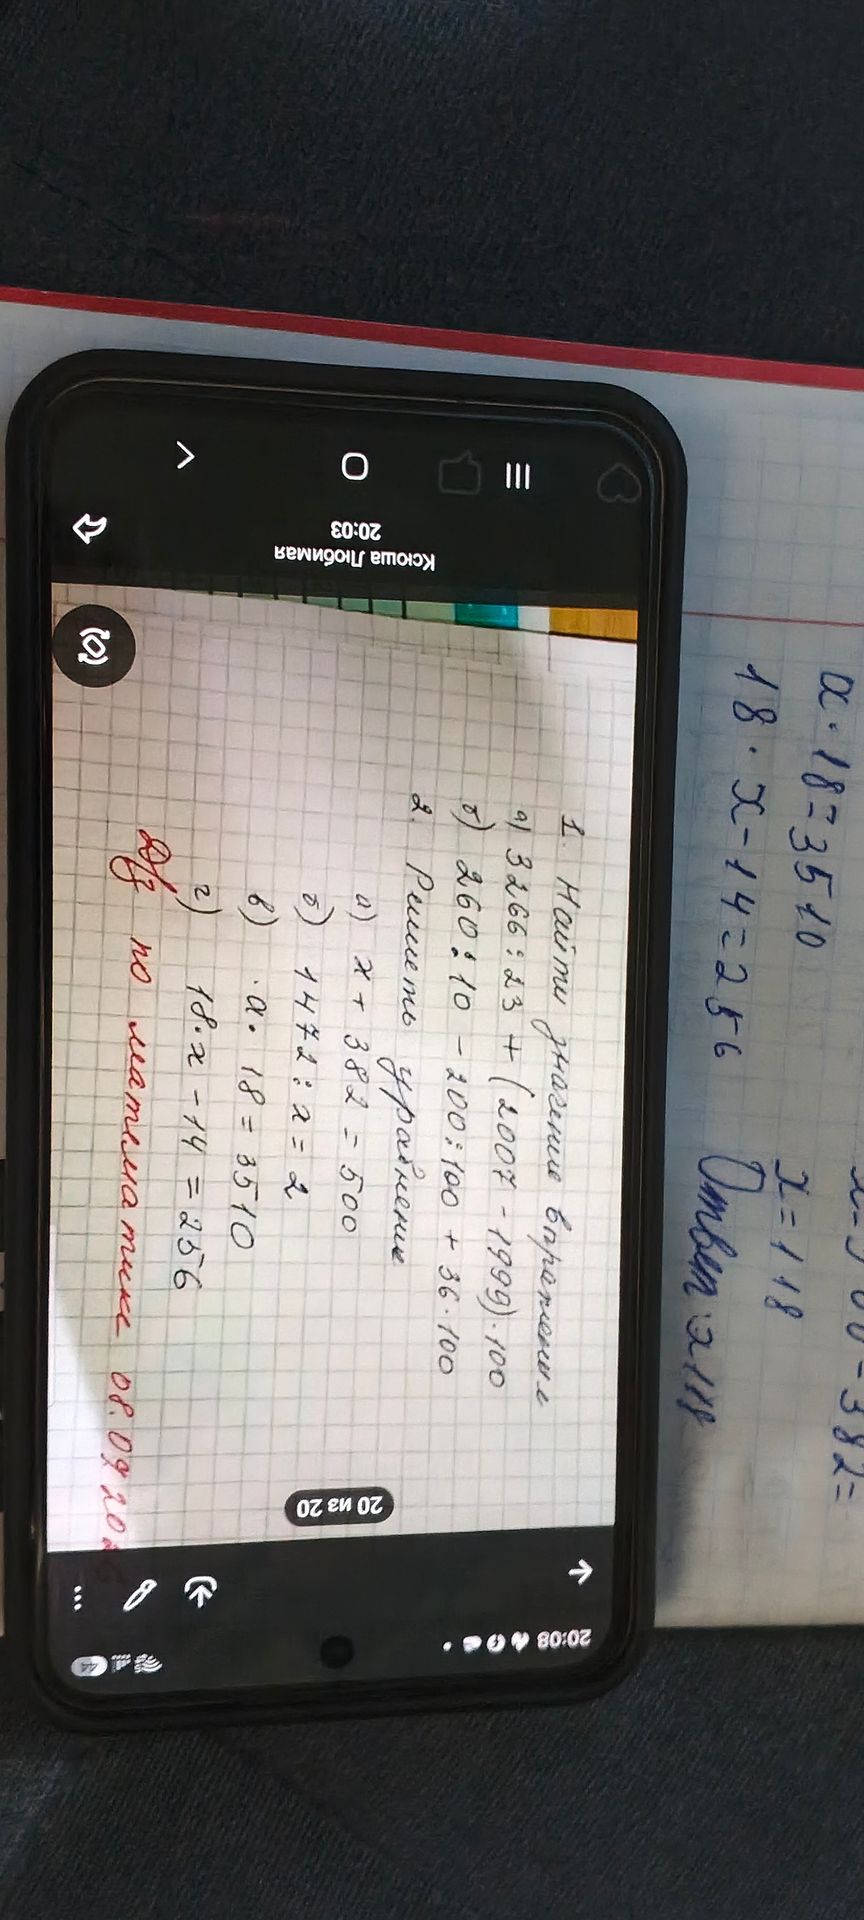 x=500-382=
x=118
Ответ: x118
а·18=3510
18·x-14=256
20:08
44
Ксюша Любимая
20:03
20 из 20
1. Найти значение выражения
а) 3266:23+(2007-1999)·100
б) 260:10-200:100+36·100
2. Решить уравнение
а) x+382=500
б) 1472:x=2
в) ·а·18=3510
г) 18·x-14=256
Д/з по математике 08.09